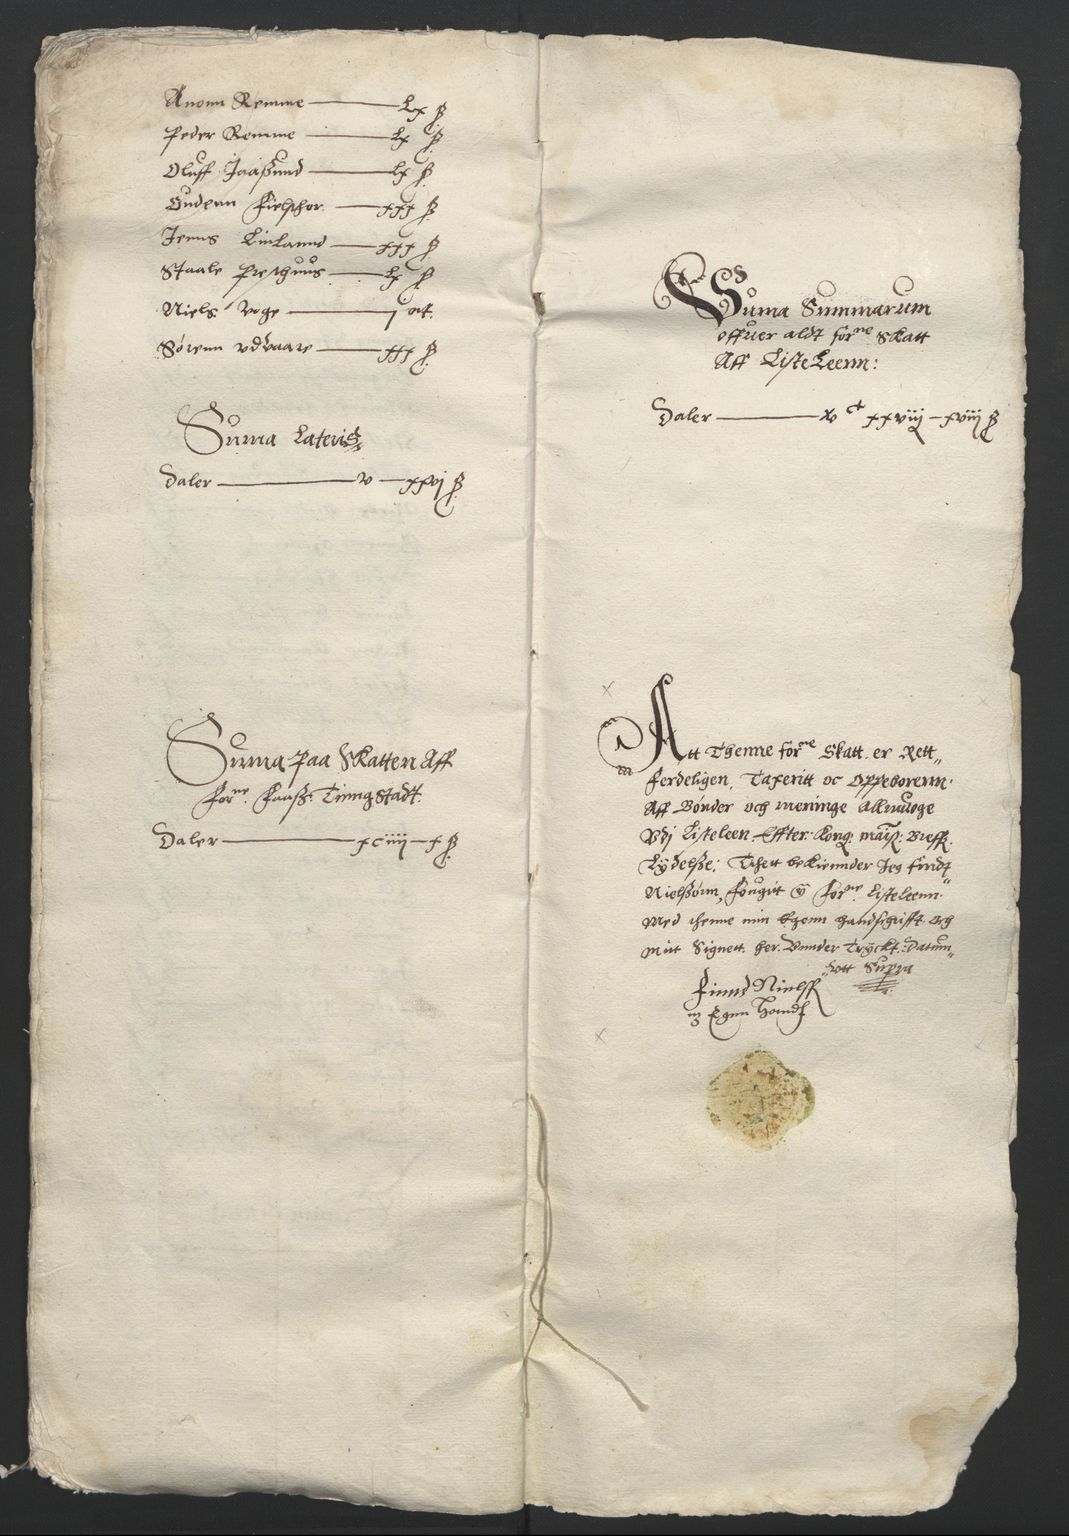 Anonn Remme — Lx ß
Peder Romme — Lx ß
Oluff Jaaßund — Lx ß
Gudenn Fielschor — xxx ß
Jenns Linlannd — xxx ß
Staale Presthuus — Lx ß
Niels Woge — j ort.
Sørenn vdvaare — xxx ß
Suma Lateris
Daler — v — xxvj ß
Suma paa Skatten Aff
forne. Faaß: Tinngstadt.
Daler — xciiij — x ß
Suma Summarum
offuer aldt forne Skatt
Aff ListeLeenn:
Daler — v C xxviij — xviij ß
Att Thenne forne Skatt er Rett„
ferdeligen, Taxeritt oc Oppeborenn
Aff Bønder och meninge Almuoge
Vdj Listeleen Effter: Kong: maits: Breffs
Lydelße; Thett bekiennder Jeg findt
Nielßønn, Fougitt y forne. Listeleenn.
Med thenne min Egenn Handschrifft och
mitt Signett her. Vnnder Tryckt: Datum„
vtt Supra
Finnd Nielss
m Egnn Handt